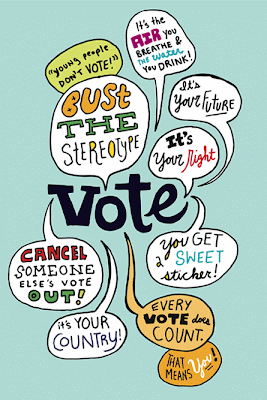 "YOUNG PEOPLE
DON'T VOTE!"
BUST
THE
STEREOTYPE
It's the
AIR YOU
BREATHE &
THE water
YOU DRINK!
It's
Your FUTURE
It's
Your Right
Vote
YOU GET
a SWEET
sticker!
CANCEL
SOMEONE
ELSE'S VOTE
OUT!
it's YOUR
COUNTRY!
EVERY
VOTE does
COUNT.
THAT
MEANS You!